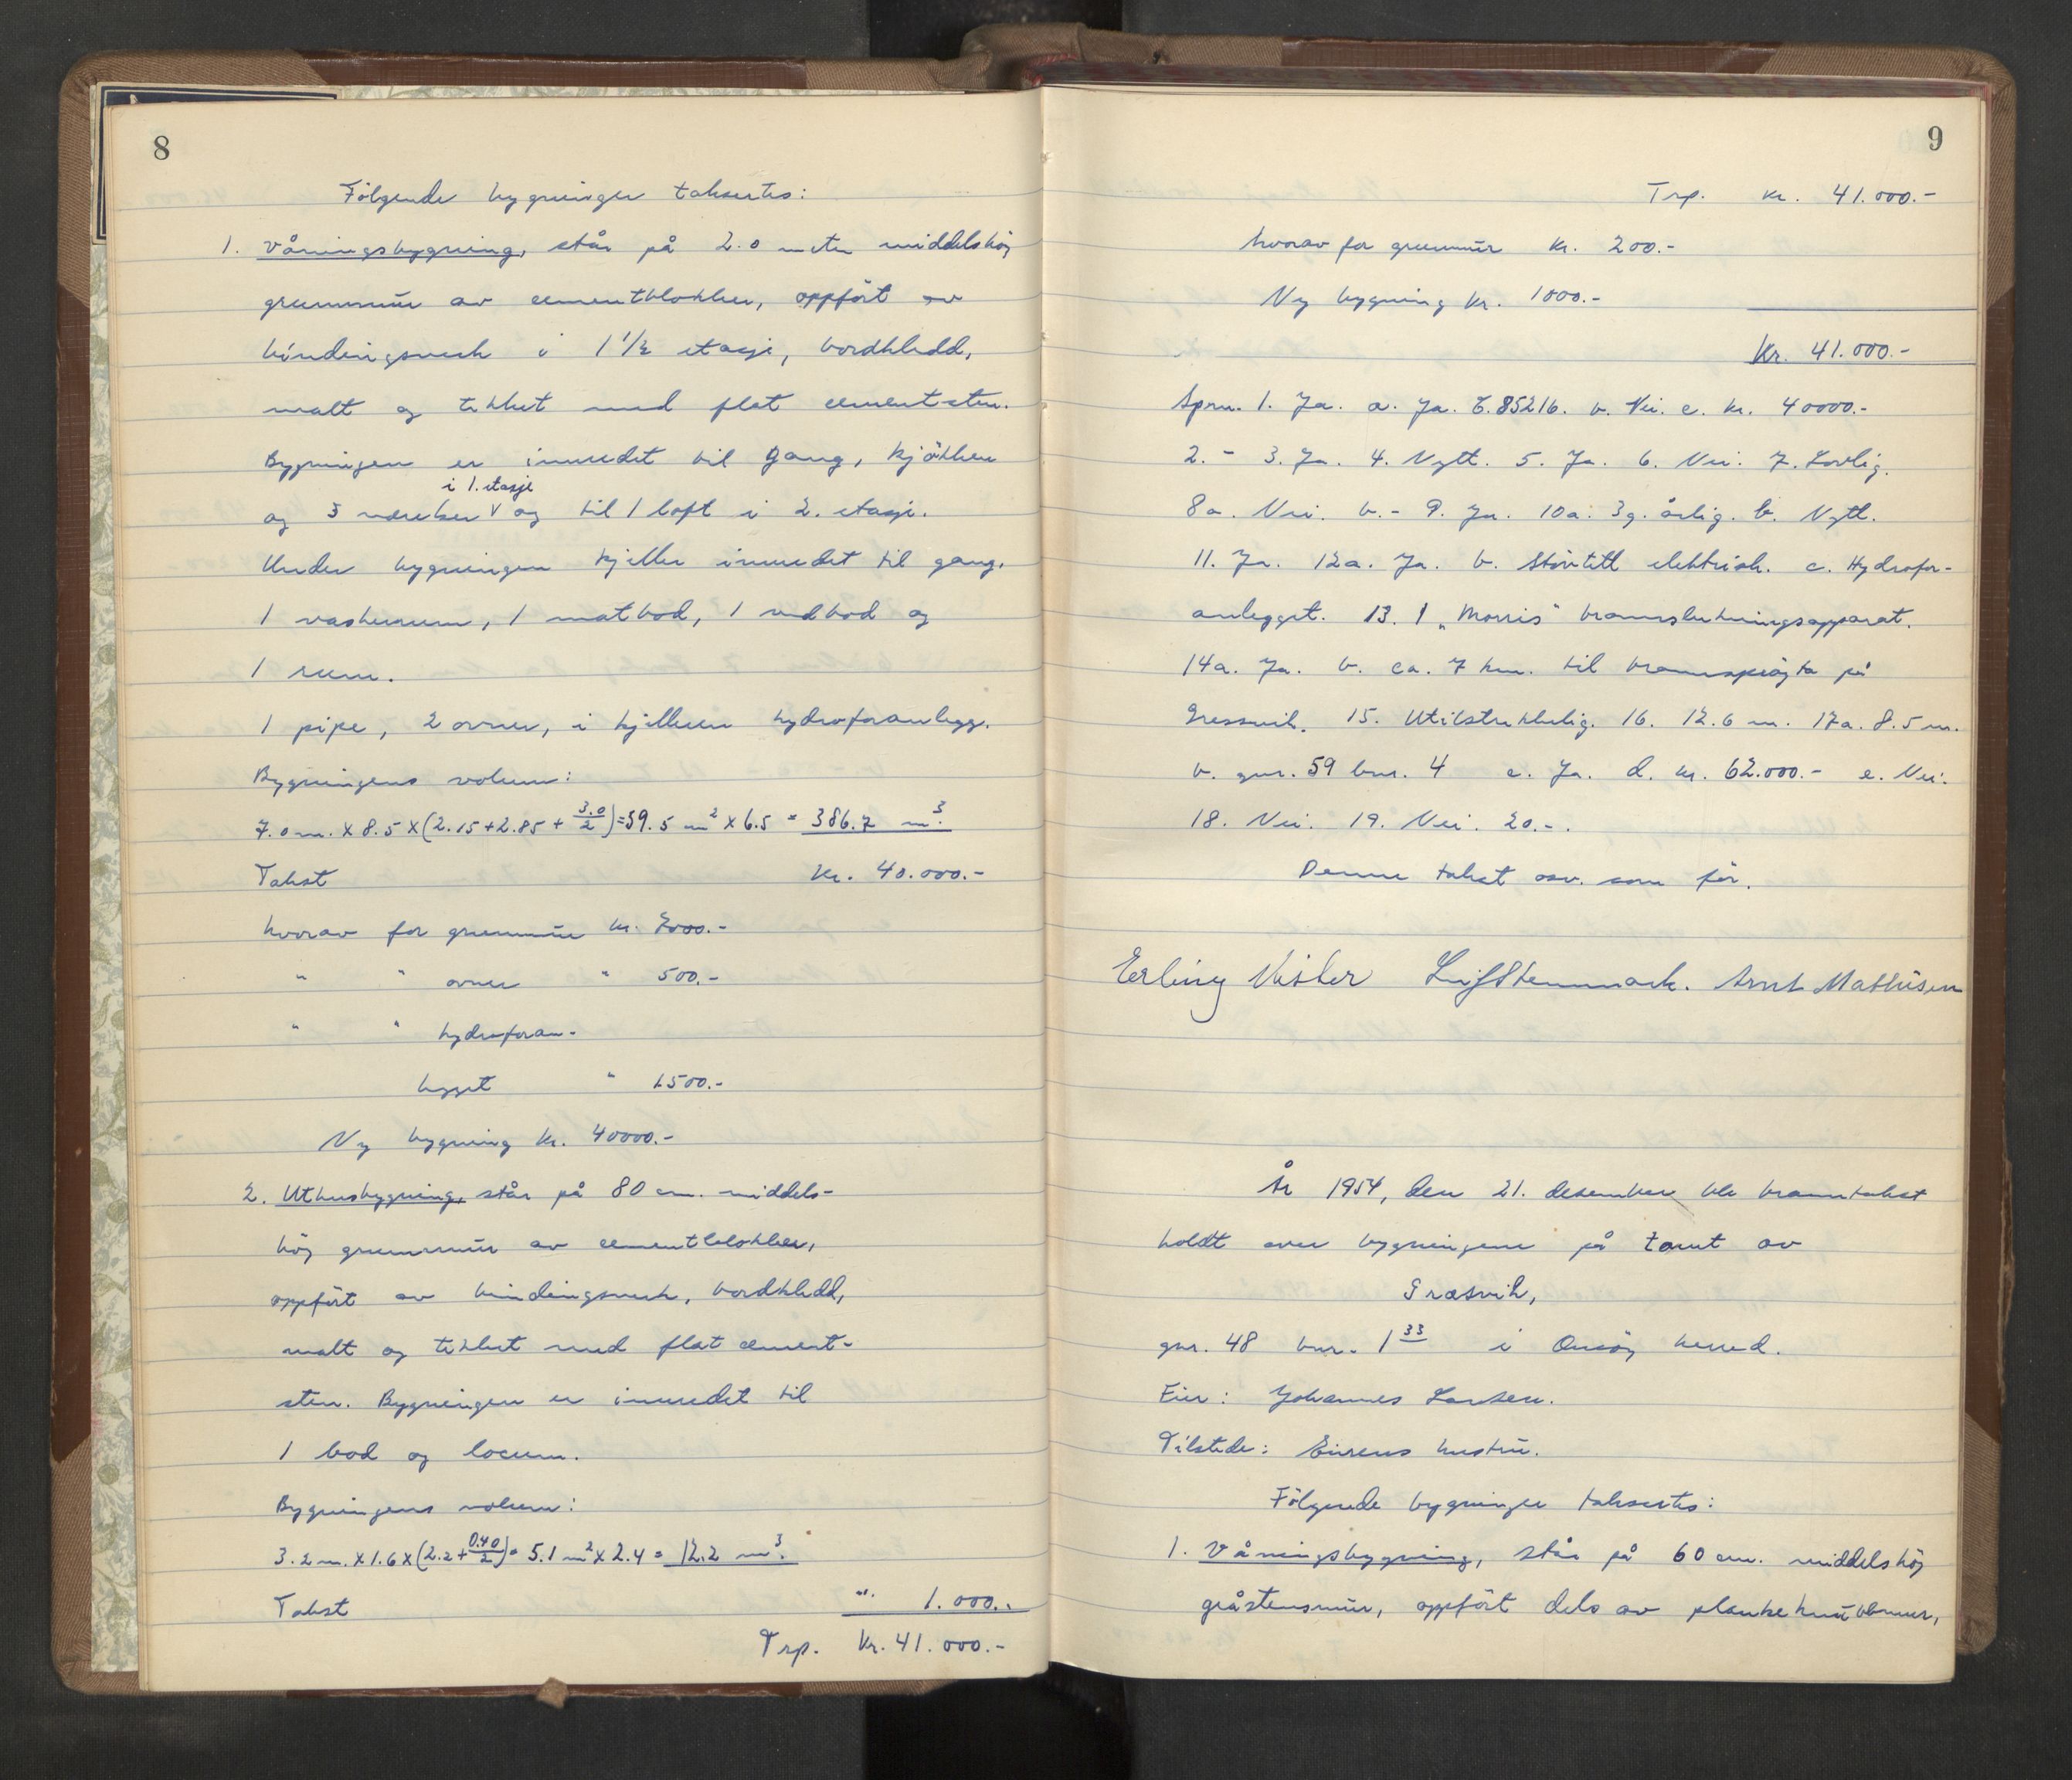 8
Følgende bygninger taksertes:
1. Våningsbygning, står på 2.0 meter middelshøy
grunnmur av cementblokker, oppført av
bindingsverk i 1 1/2 etasje, bordkledd,
malt og tekket med flat cementsten.
Bygningen er innredet til gang, kjøkken
i 1. etasje
og 3 værelser V og til 1 loft i 2. etasje.
Under bygningen kjeller innredet til gang,
1 vaskerum, 1 matbod, 1 vedbod og
1 rum.
1 pipe, 2 ovner, i kjelleren hydroforanlegg.
Bygningens volum:
7.0 m. x 8.5 x (2.15 + 2.85 + 3.0/2) = 59.5 m² x 6.5 = 386.7 m³.
Takst kr. 40.000.-
hvorav for grunnmur kr. 7000.-
" " ovner " 500.-
" " hydroforan-
legget " 1500.-
Ny bygning kr. 40000.-
2. Uthusbygning, står på 80 cm. middels-
høy grunnmur av cementblokker,
oppført av bindingsverk, bordkledd,
malt og tekket med flat cement-
sten. Bygningen er innredet til
1 bod og locum.
Bygningens volum:
3.2 m. x 1.6 x (2.2 + 0.40/2) = 5.1 m² x 2.4 = 12.2 m³.
Takst " 1.000.-
Trp. Kr. 41.000.-
9
Trp. kr. 41.000.-
hvorav for grunnmur kr. 200.-
Ny bygning kr. 1000.-
Kr. 41.000.-
Spm. 1. Ja. a. Ja. B.85216. b. Nei. c. kr. 40000.-
2. - 3. Ja. 4. Nytt. 5. Ja. 6. Nei. 7. Lovlig.
8a. Nei. b. - 9. Ja. 10a. 3 g. årlig. b. Nytt.
11. Ja. 12a. Ja. b. Støvtett elektrisk. c. Hydrofor-
anlegget. 13. 1 "Morris" brannslukningsapparat.
14a. Ja. b. ca. 7 km. til brannsprøyta på
Gressvik. 15. Utilstrekkelig. 16. 12.6 m. 17a. 8.5 m.
b. gnr. 59 bnr. 4 c. Ja. d. kr. 62.000.- e. Nei.
18. Nei. 19. Nei. 20. -.
Denne takst osv. som før.
Erling Arnt Mathisen
År 1954, den 21. desember ble branntakst
holdt over bygningene på tomt av
Græsvik,
gnr. 48 bnr. 1 33 i Onsøy herred.
Eier: Johannes Larsen.
Tilstede: Eierens hustru.
Følgende bygninger taksertes:
1. Våningsbygning, står på 60 cm. middelshøy
gråstensmur, oppført dels av plankekubbmur,